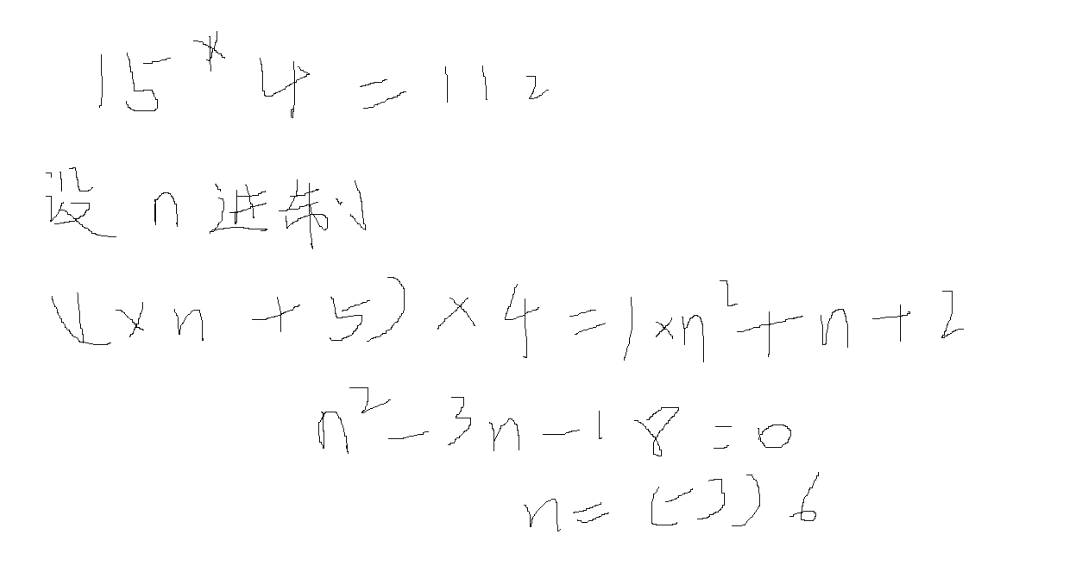 15*4=112
设 n 进制
(1×n+5)×4=1×n²+n+2
n²-3n-18=0
n=(-3)6